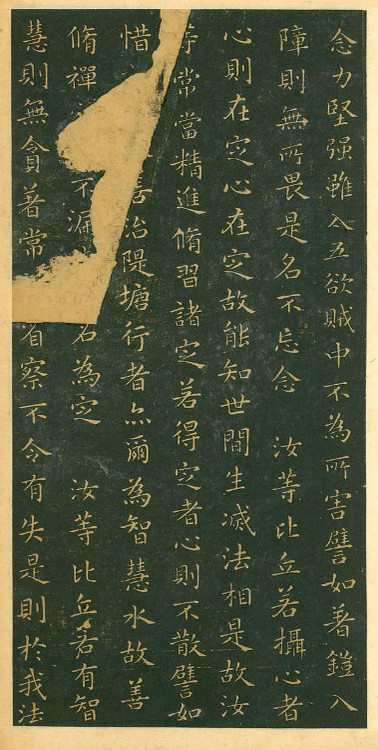 念力堅强雖入五欲賊中不為所害譬如著鎧入
障則無所畏是名不忘念　汝等比丘若攝心者
心則在定心在定故能知世間生滅法相是故汝
等常當精進脩習諸定若得定者心則不散譬如
惜善治隄塘行者亦爾為智慧水故善
脩禪不漏名為定　汝等比丘若有智
慧則無貪著常省察不令有失是則於我法